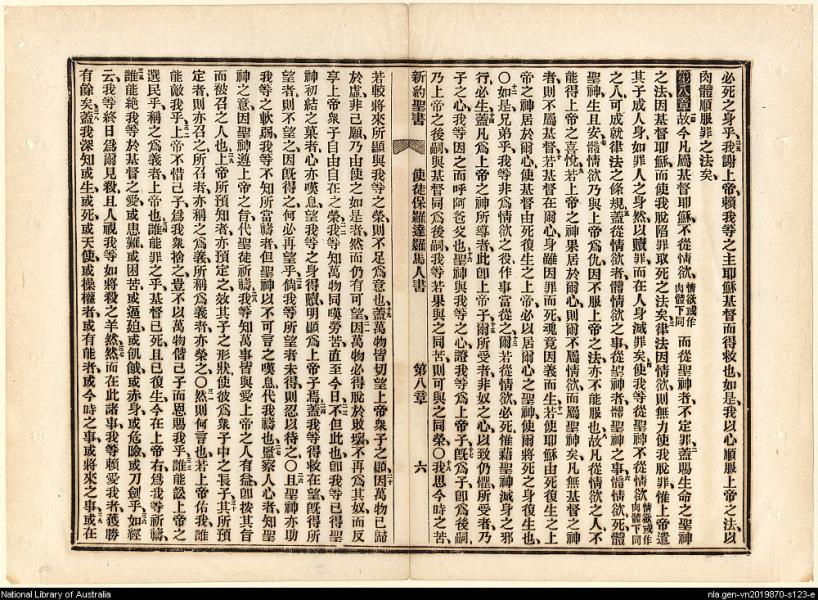 必死之身乎我謝上帝賴我等之主耶穌基督而得救也如是我以心順服上帝之法以
肉體順服罪之法矣
第八章故今凡屬基督耶穌不從情欲情欲或作肉體下同而從聖神者不定罪蓋賜生命之聖神
之法因基督耶穌而使我脫陷罪取死之法矣律法因情欲則無力使我脫罪惟上帝遣
其子成人身如罪人之身然以贖罪而在人身滅罪矣使我等從聖神不從情欲情欲或作肉體下同
之人可成就律法之條規蓋從情欲者體情欲之事從聖神者體聖神之事體情欲死體
聖神生且安體情欲乃與上帝為仇因不服上帝之法亦不能服也故凡從情欲之人不
能得上帝之喜悅若上帝之神果居於爾心則爾不屬情欲而屬聖神矣凡無基督之神
者則不屬基督若基督在爾心身雖因罪而死魂竟因義而生若使耶穌由死復生之上
帝之神居於爾心則使基督由死復生之上帝必以居爾心之神使爾將死之身復生也
〇如是兄弟乎我等非為情欲之役作事當從之爾若從情欲必死惟藉聖神滅身之邪
行必生蓋凡為上帝之神所導者此卽上帝子爾所受者非奴之心以致仍懼所受者乃
子之心我等因之而呼阿爸父也聖神與我等之心證我等為上帝子旣為子卽為後嗣
乃上帝之後嗣與基督同為後嗣我等若果與之同苦則可與之同榮〇我思今時之苦
新約聖書 使徒保羅達羅馬人書 第八章 六
若較將來所顯與我等之榮則不足為意也蓋萬物皆切望上帝衆子之顯因萬物已歸
於虛非己願乃由使之如是者然而仍有可望因萬物必得脫於敗壞不再為其奴而反
享上帝衆子自由自在之榮我等知萬物同嘆勞苦直至今日不但此也卽我等已得聖
神初結之菓者心亦嘆息望我等之身得贖明顯為上帝子焉蓋我等得救在望旣得所
望者則不望之因旣得之何必再望乎倘我等所望者未得則忍以待之〇且聖神亦助
我等之軟弱我等不知所當禱者但聖神以不可言之嘆息代我禱也鑒察人心者知聖
神之意因聖神遵上帝之旨代聖徒祈禱我等知萬事皆與愛上帝之人有益卽按其旨
而被召之人也上帝所預知者亦預定之效其子之形狀使彼為衆子中之長子其所預
定者則亦召之所召者亦稱之為義所稱為義者亦榮之〇然則何言也若上帝佑我誰
能敵我乎上帝不惜己子為我衆捨之豈不以萬物偕己子而恩賜我乎誰能訟上帝之
選民乎稱之為義者上帝也誰能罪之乎基督已死且已復生今在上帝右為我等祈禱
誰能絕我等於基督之愛或患難或困苦或逼迫或飢餓或赤身或危險或刀劍乎如經
云我等終日為爾見殺且人視我等如將殺之羊然然而在此諸事我等賴愛我者獲勝
有餘矣蓋我深知或生或死或天使或操權者或有能者或今時之事或將來之事或在
National Library of Australia
nla.gen-vn2019870-s123-e